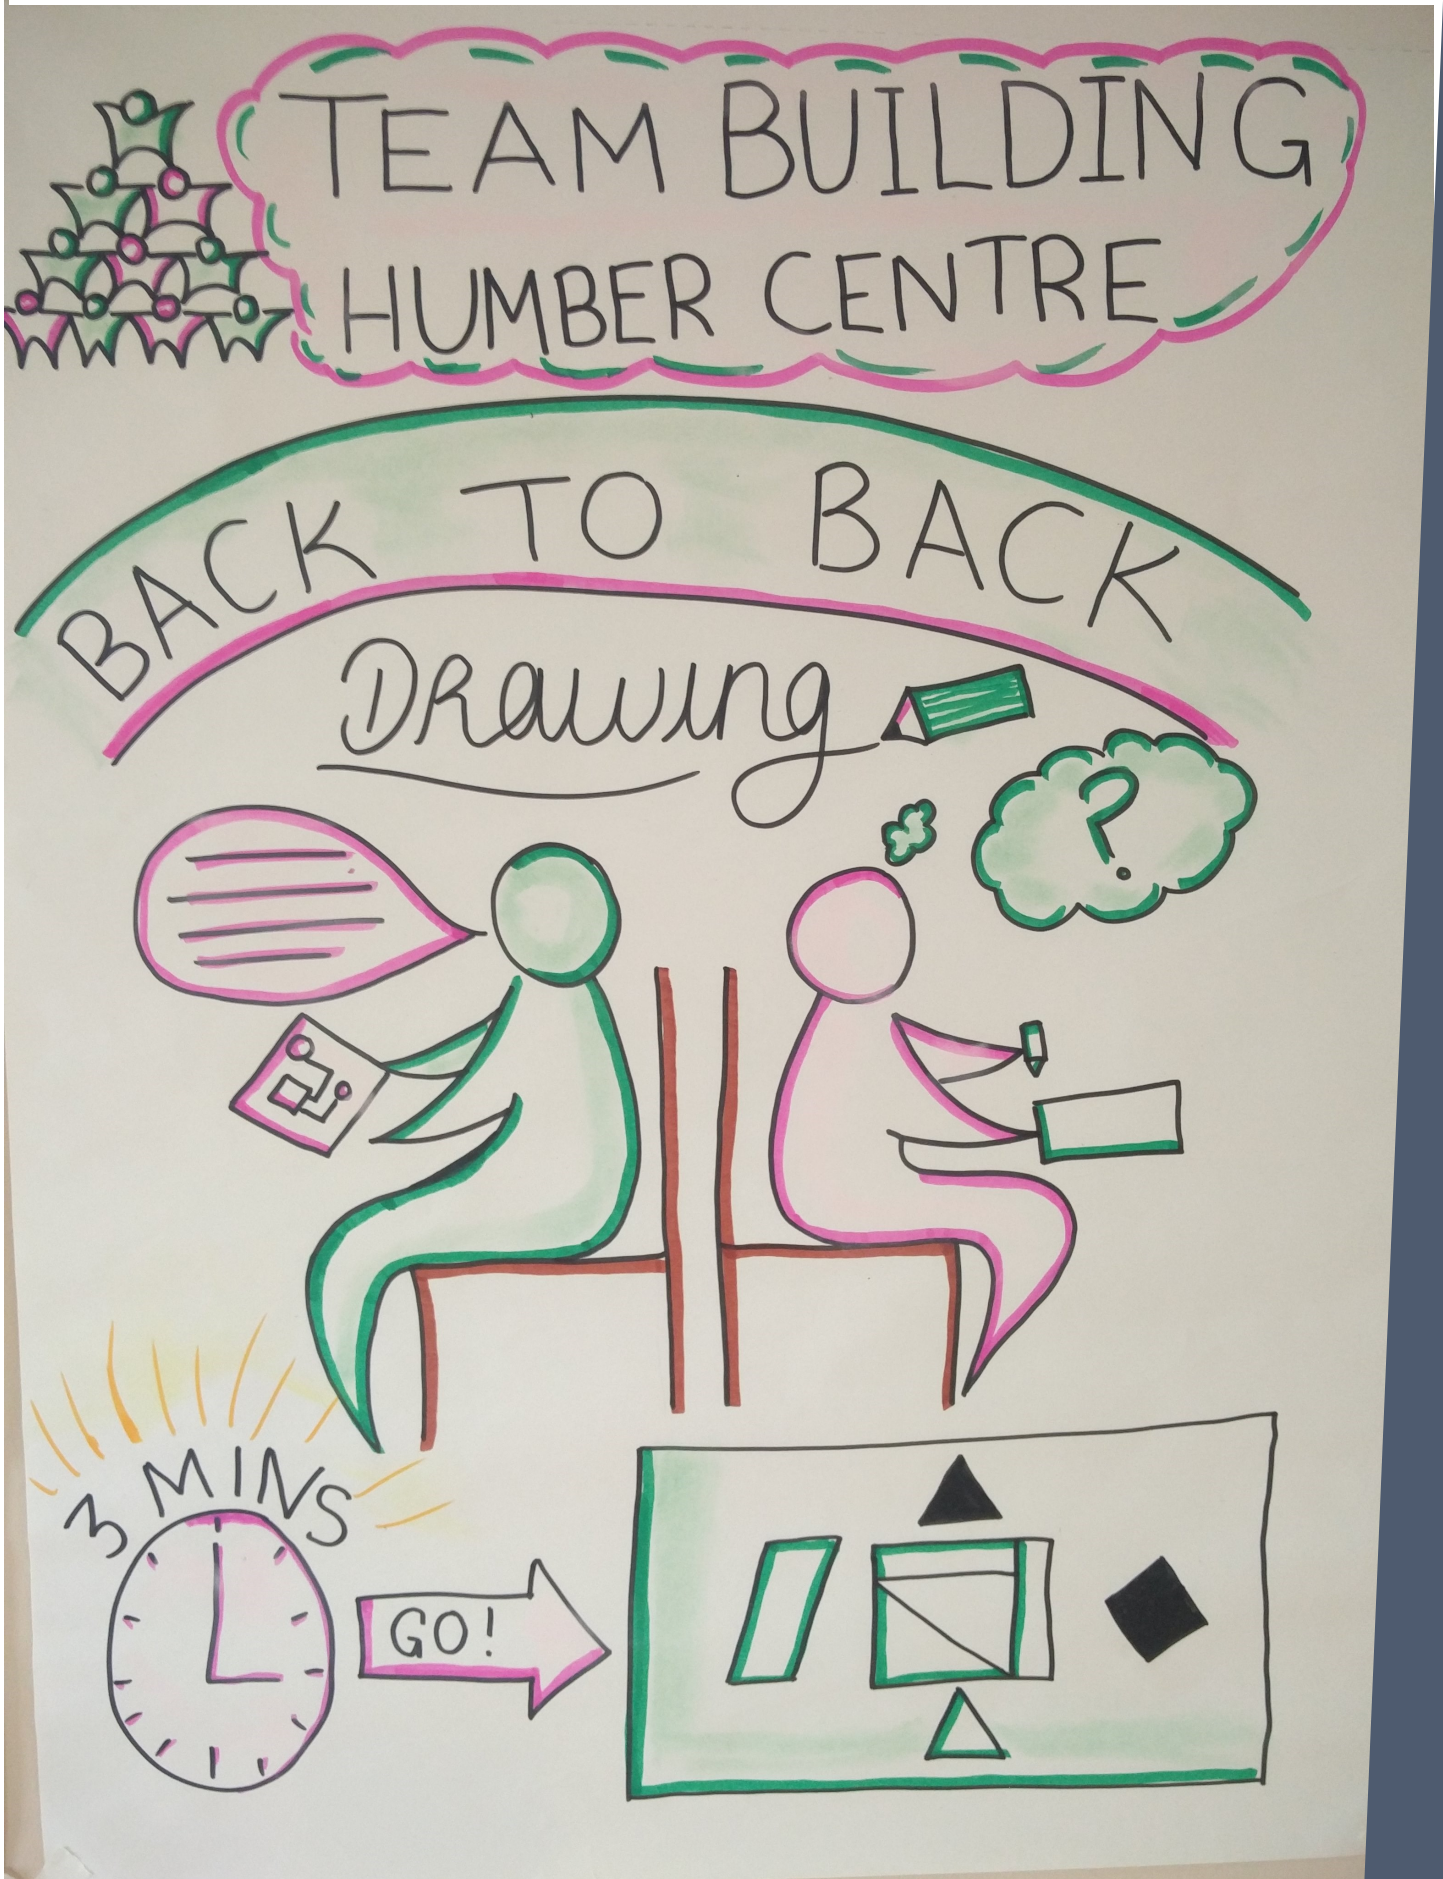 TEAM BUILDING
HUMBER CENTRE
BACK TO BACK
DRawing
?
3 MINS
GO!